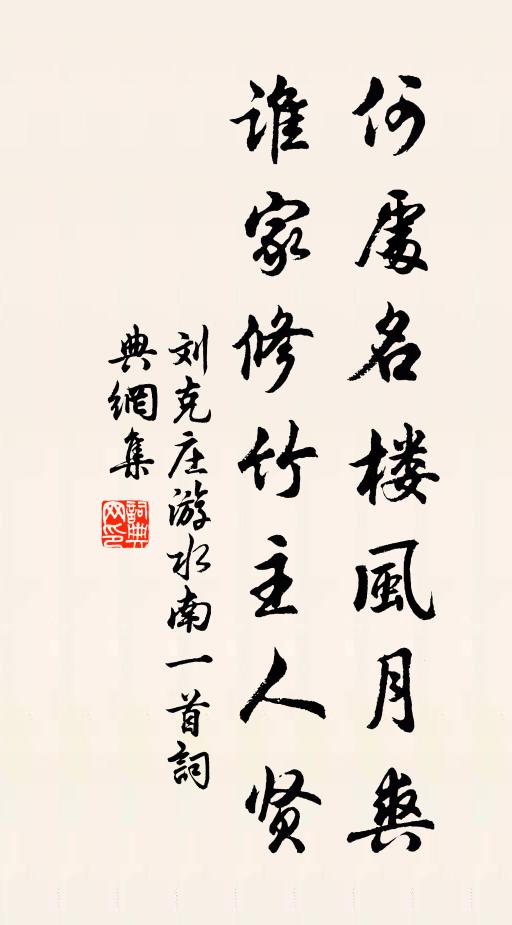 何處名楼風月爽
谁家修竹主人贤
刘克庄游水南一首詞
典網集
詞典网印